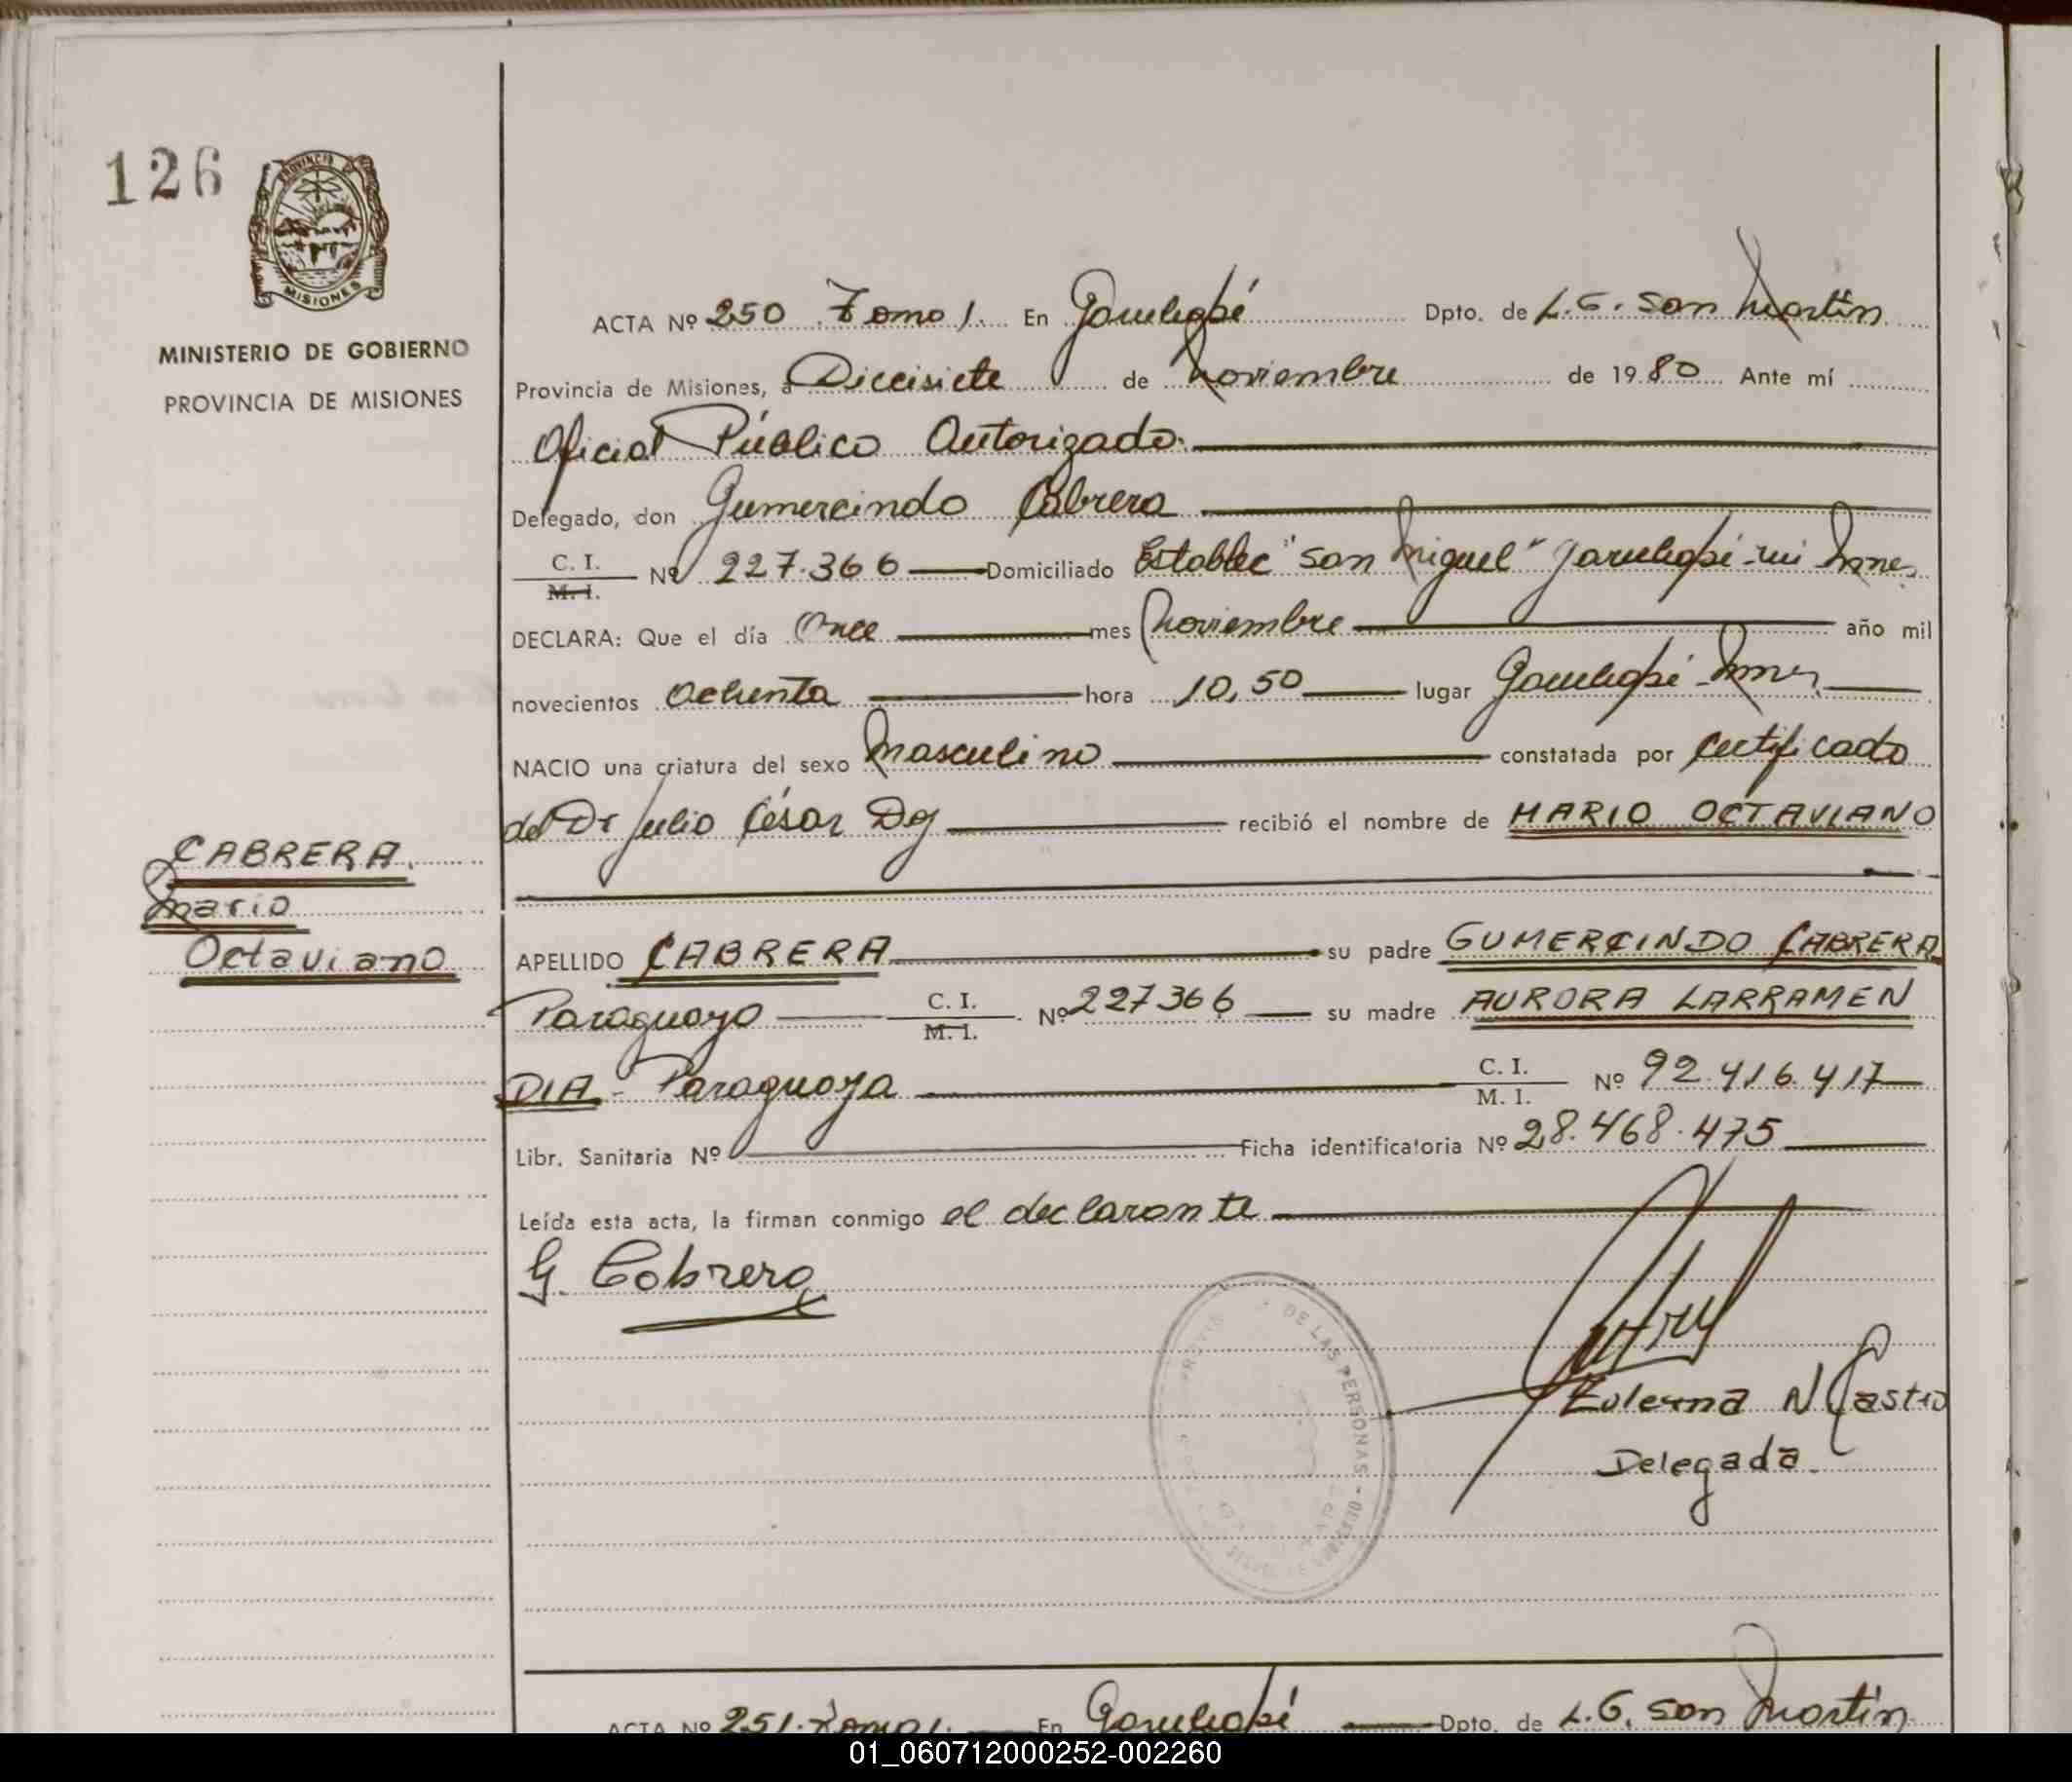 126
PROVINCIA DE
MISIONES
MINISTERIO DE GOBIERNO
PROVINCIA DE MISIONES
ACTA Nº 250 Tomo 1. En Garuhapé Dpto. de L.G. San Martín
Provincia de Misiones, a Diecisiete de Noviembre de 1980 Ante mí
Oficial Público Autorizado.
Delegado, don Gumercindo Cabrera
C. I.
M. I. Nº 227.366 Domiciliado Establec "San Miguel" Garuhapé-mi Mnes.
DECLARA: Que el día Once mes Noviembre año mil
novecientos Ochenta hora 10,50 lugar Garuhapé Mnes
NACIO una criatura del sexo Masculino constatada por Certificado
del Dr Julio César Dej recibió el nombre de MARIO OCTAVIANO
CABRERA.
Mario
Octaviano
APELLIDO CABRERA su padre GUMERCINDO CABRERA
Paraguayo C. I.
M. I. Nº 227366 su madre AURORA LARRAMEN
DIA - Paraguaya C. I.
M. I. Nº 92.416.417
Libr. Sanitaria Nº Ficha identificatoria Nº 28.468.475
Leída esta acta, la firman conmigo el declarante
G. Cabrera
DE LAS PERSONAS
Zulema N Castro
Delegada.
ACTA Nº 251. Tomo 1. En Garuhapé Dpto. de L.G. San Martín
01_060712000252-002260